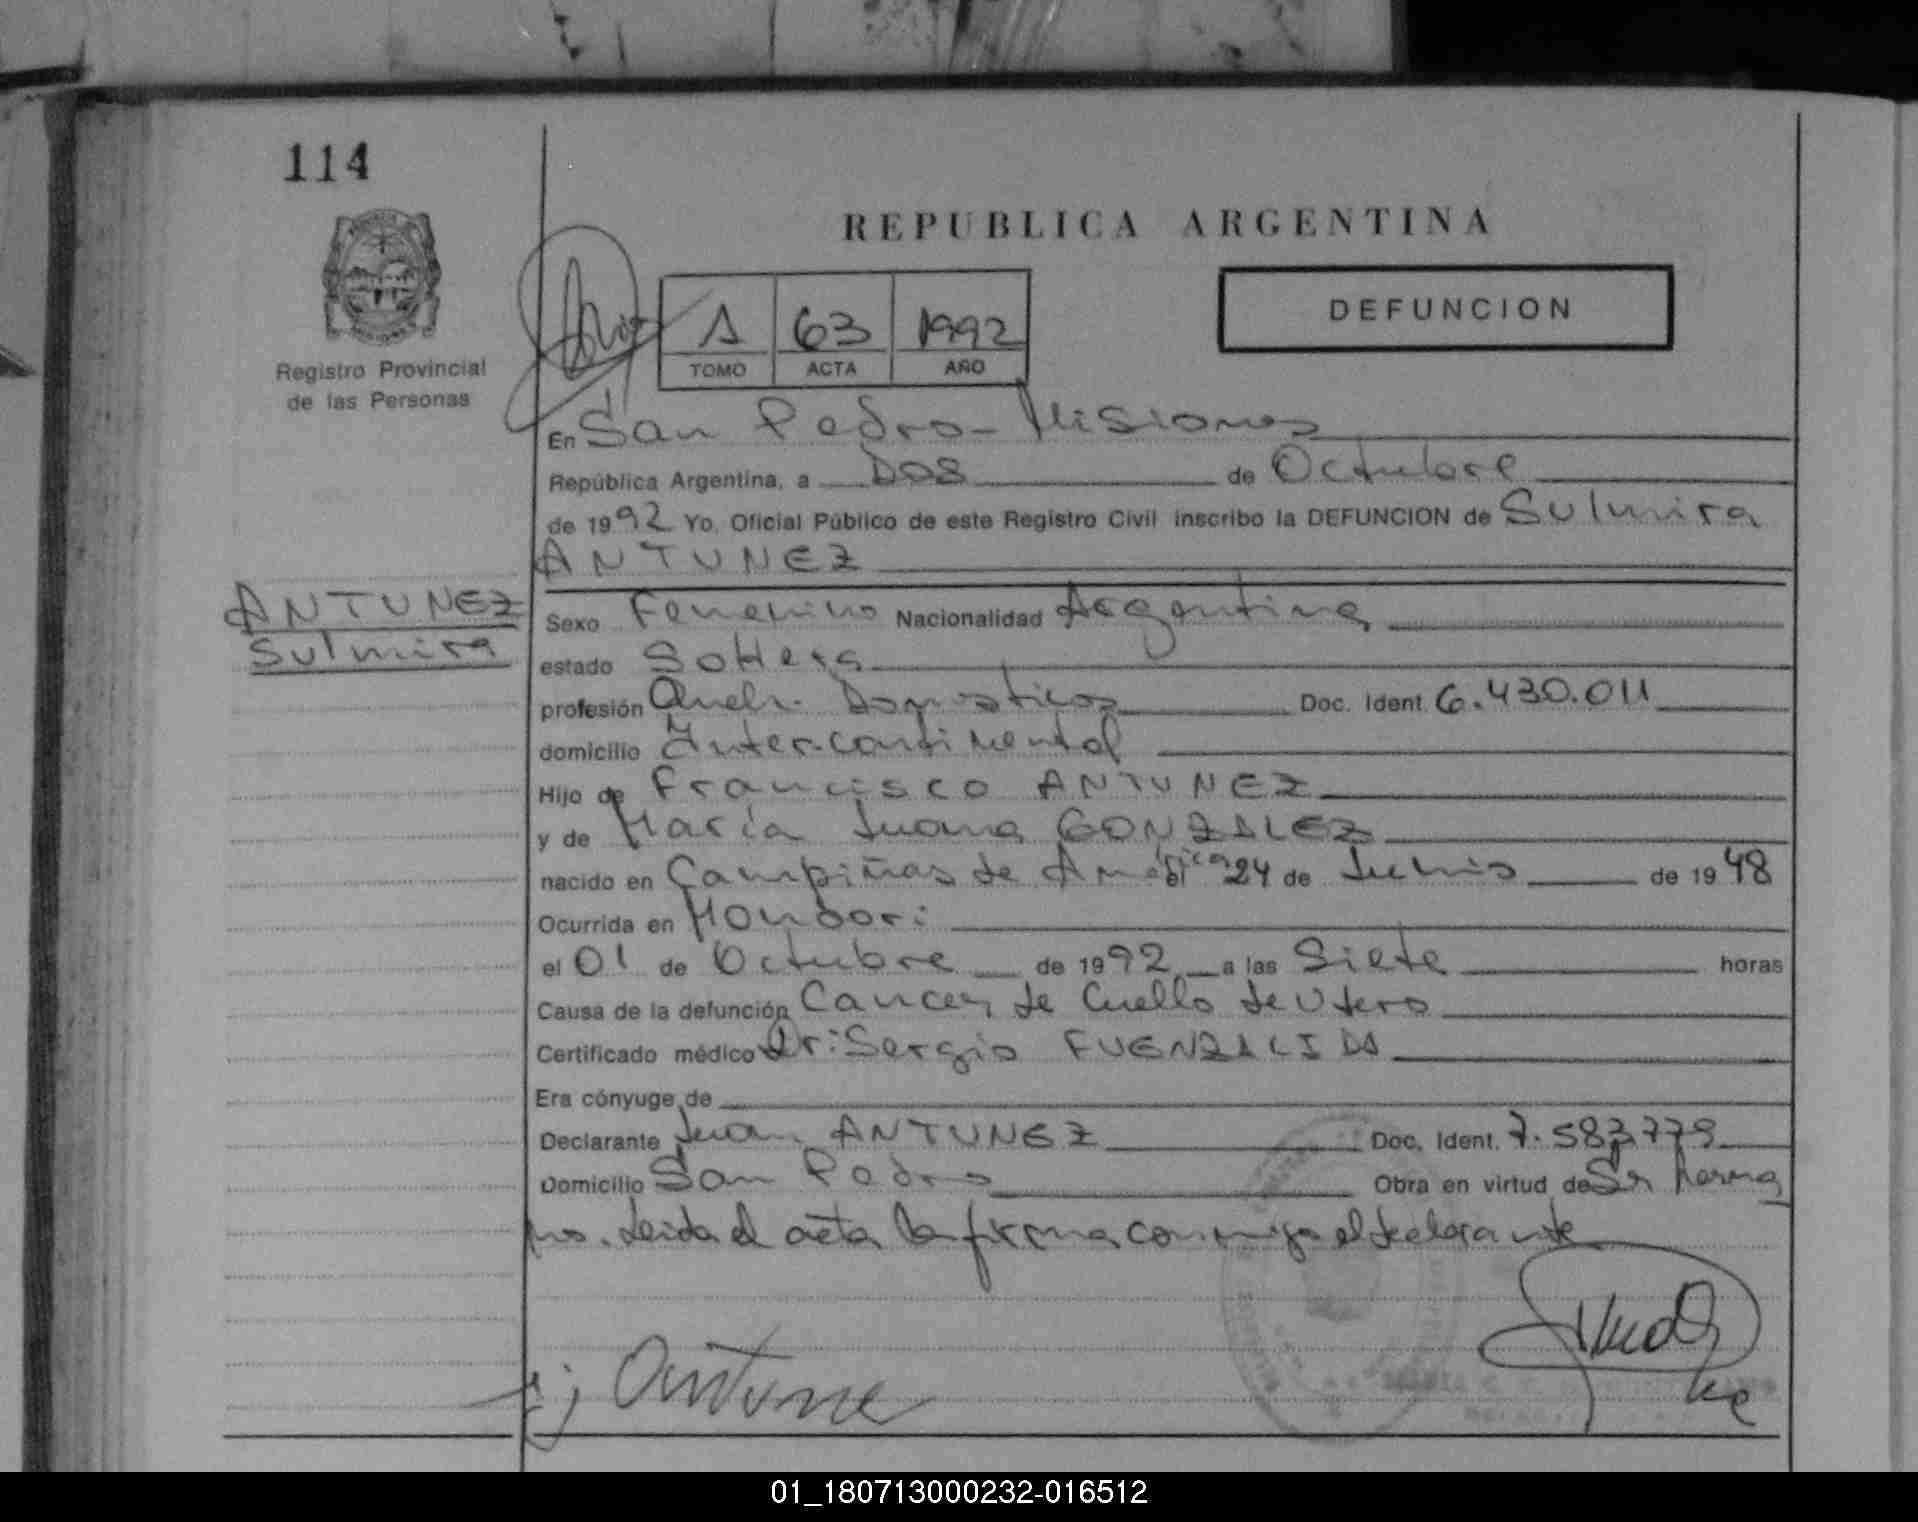 114
REPUBLICA ARGENTINA
DEFUNCION
Registro Provincial
de las Personas
A 63 1992
TOMO ACTA AÑO
En San Pedro - Misiones
República Argentina, a Dos de Octubre
de 1992 Yo, Oficial Público de este Registro Civil inscribo la DEFUNCION de Sulmira
ANTUNEZ
ANTUNEZ
Sulmira
Sexo Femenino Nacionalidad Argentina
estado Soltera
profesión Queh. Domesticos Doc. Ident. 6.430.011
domicilio Intercontinental
Hijo de Francisco ANTUNEZ
y de María Juana GONZALEZ
nacido en Campiñas de América el 24 de de 1948
Ocurrida en Mondori
el 01 de Octubre de 1992 a las Siete horas
Causa de la defunción Cancer de Cuello de Utero
Certificado médico Dr: Sergio FUENZALIDA
Era cónyuge de
Declarante Juan ANTUNEZ Doc. Ident. 7.583.779
Domicilio San Pedro Obra en virtud de Ser herma
no. Leida el acta la firma conmigo el declarante
Antune
01_180713000232-016512